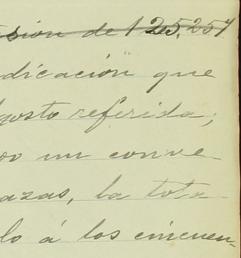 esión de 125,257
dicación que
gosto referida;
por un conve-
azas, la tota-
do á los cincuen-